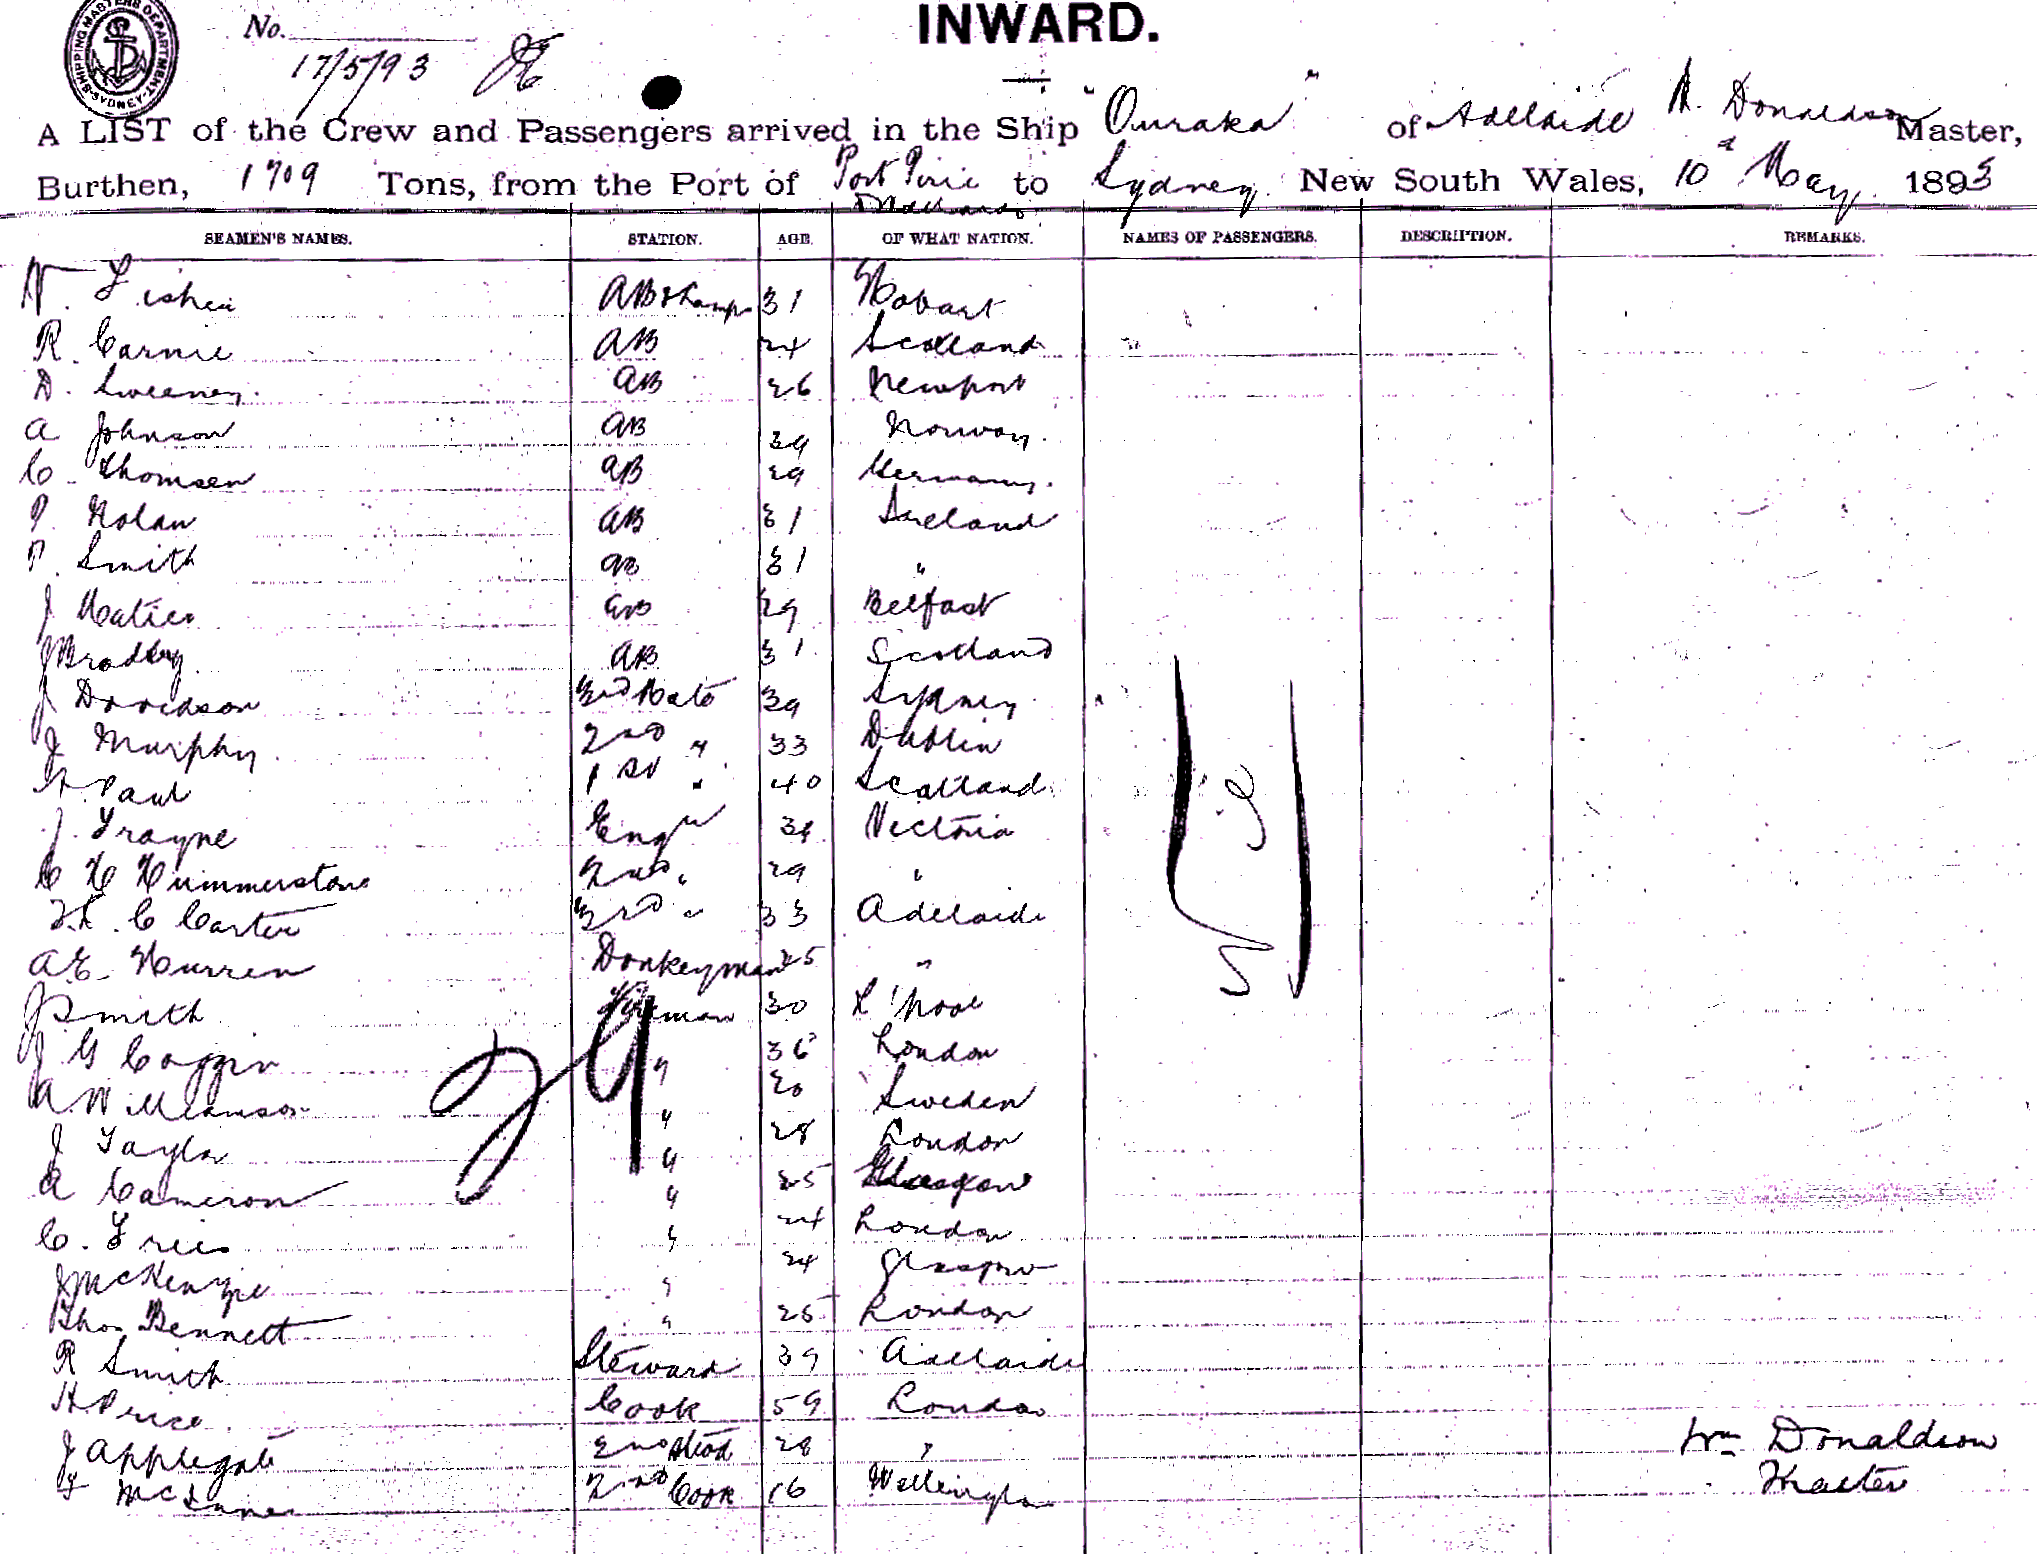 SHIPPING MASTERS DEPARTMENT SYDNEY
No.
INWARD.
17/5/93
A LIST of the Crew and Passengers arrived in the Ship "Ouraka" of Adelaide Donaldson Master,
Burthen, 1709 Tons, from the Port of Port Pirie to Sydney New South Wales, 10 May 1893
SEAMEN'S NAMES. STATION. AGE. OF WHAT NATION. NAMES OF PASSENGERS. DESCRIPTION. REMARKS.
W. Fisher AB & Lamps 31 Hobart
R. Carnie AB 24 Scotland
D. Sweeney AB 26 Newport
A Johnson AB 39 Norway
C Thomsen AB 29 Germany
P. Nolan AB 31 Ireland
P. Smith AB 31 "
J AB 29 Belfast
J Bradley AB 31 Scotland
J Davidson 3rd Mate 39 Sydney
J Murphy 2nd " 33 Dublin
Paul 1st " 40 Scotland
J. Trayne Engr 34 Victoria
C H Hummerstone 2nd " 29 "
C Carter 3rd " 33 Adelaide
A E Hurren Donkeyman 25 "
J Smith Fireman 30 L'pool
J G Coggin " 36 London
A. Williamson " 20 Sweden
J Taylor " 28 London
A Cameron " 25 Glasgow
C. Fries " 24 London
J McKenzie " 24 Glasgow
Thos Bennett " 25 London
R Smith Steward 39 Adelaide
H Price Cook 59 London
J Applegate 2nd Stwd 28 "
F McInnes 2nd Cook 16 Wellington
29
Wm Donaldson
Master